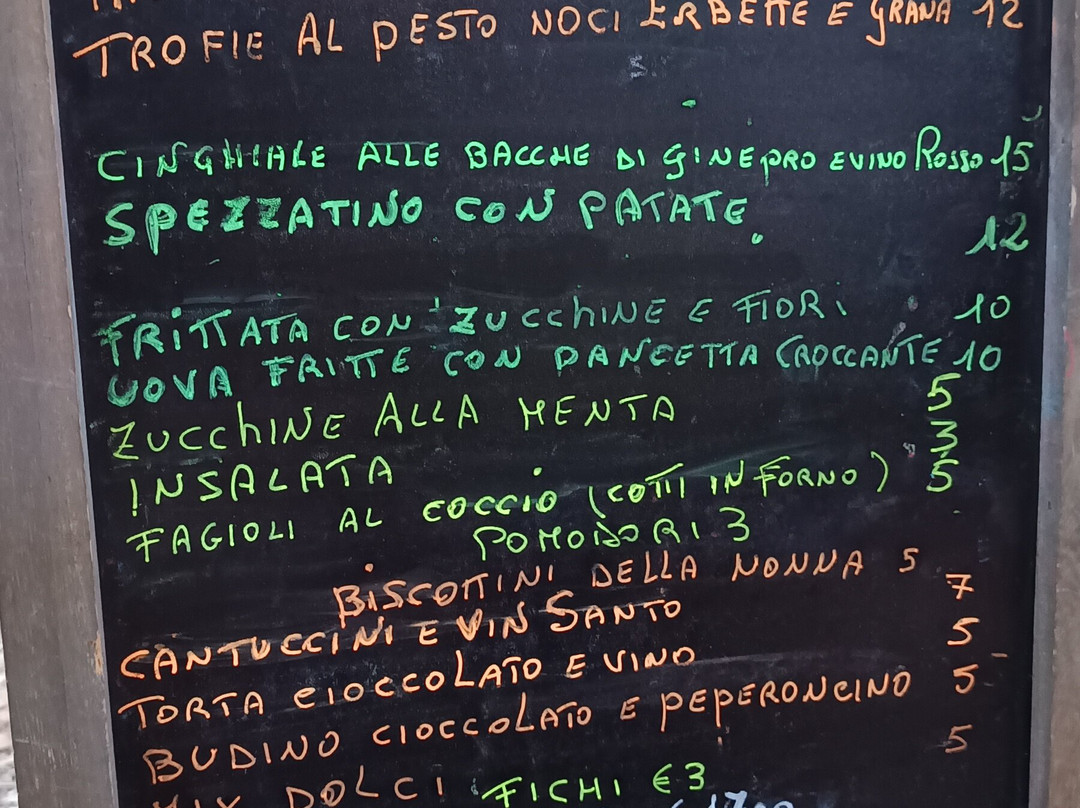 TROFIE AL PESTO NOCI ERBETTE E GRANA 12
CINGHIALE ALLE BACCHE DI GINEPRO E VINO ROSSO 15
SPEZZATINO CON PATATE. 12
FRITTATA CON ZUCCHINE E FIORI 10
UOVA FRITTE CON PANCETTA CROCCANTE 10
ZUCCHINE ALLA MENTA 5
INSALATA 3
FAGIOLI AL COCCIO (COTTI IN FORNO) 5
POMODORI 3
BISCOTTINI DELLA NONNA 5
CANTUCCINI E VIN SANTO 7
TORTA CIOCCOLATO E VINO 5
BUDINO CIOCCOLATO E PEPERONCINO 5
MIX DOLCI 5
FICHI €3